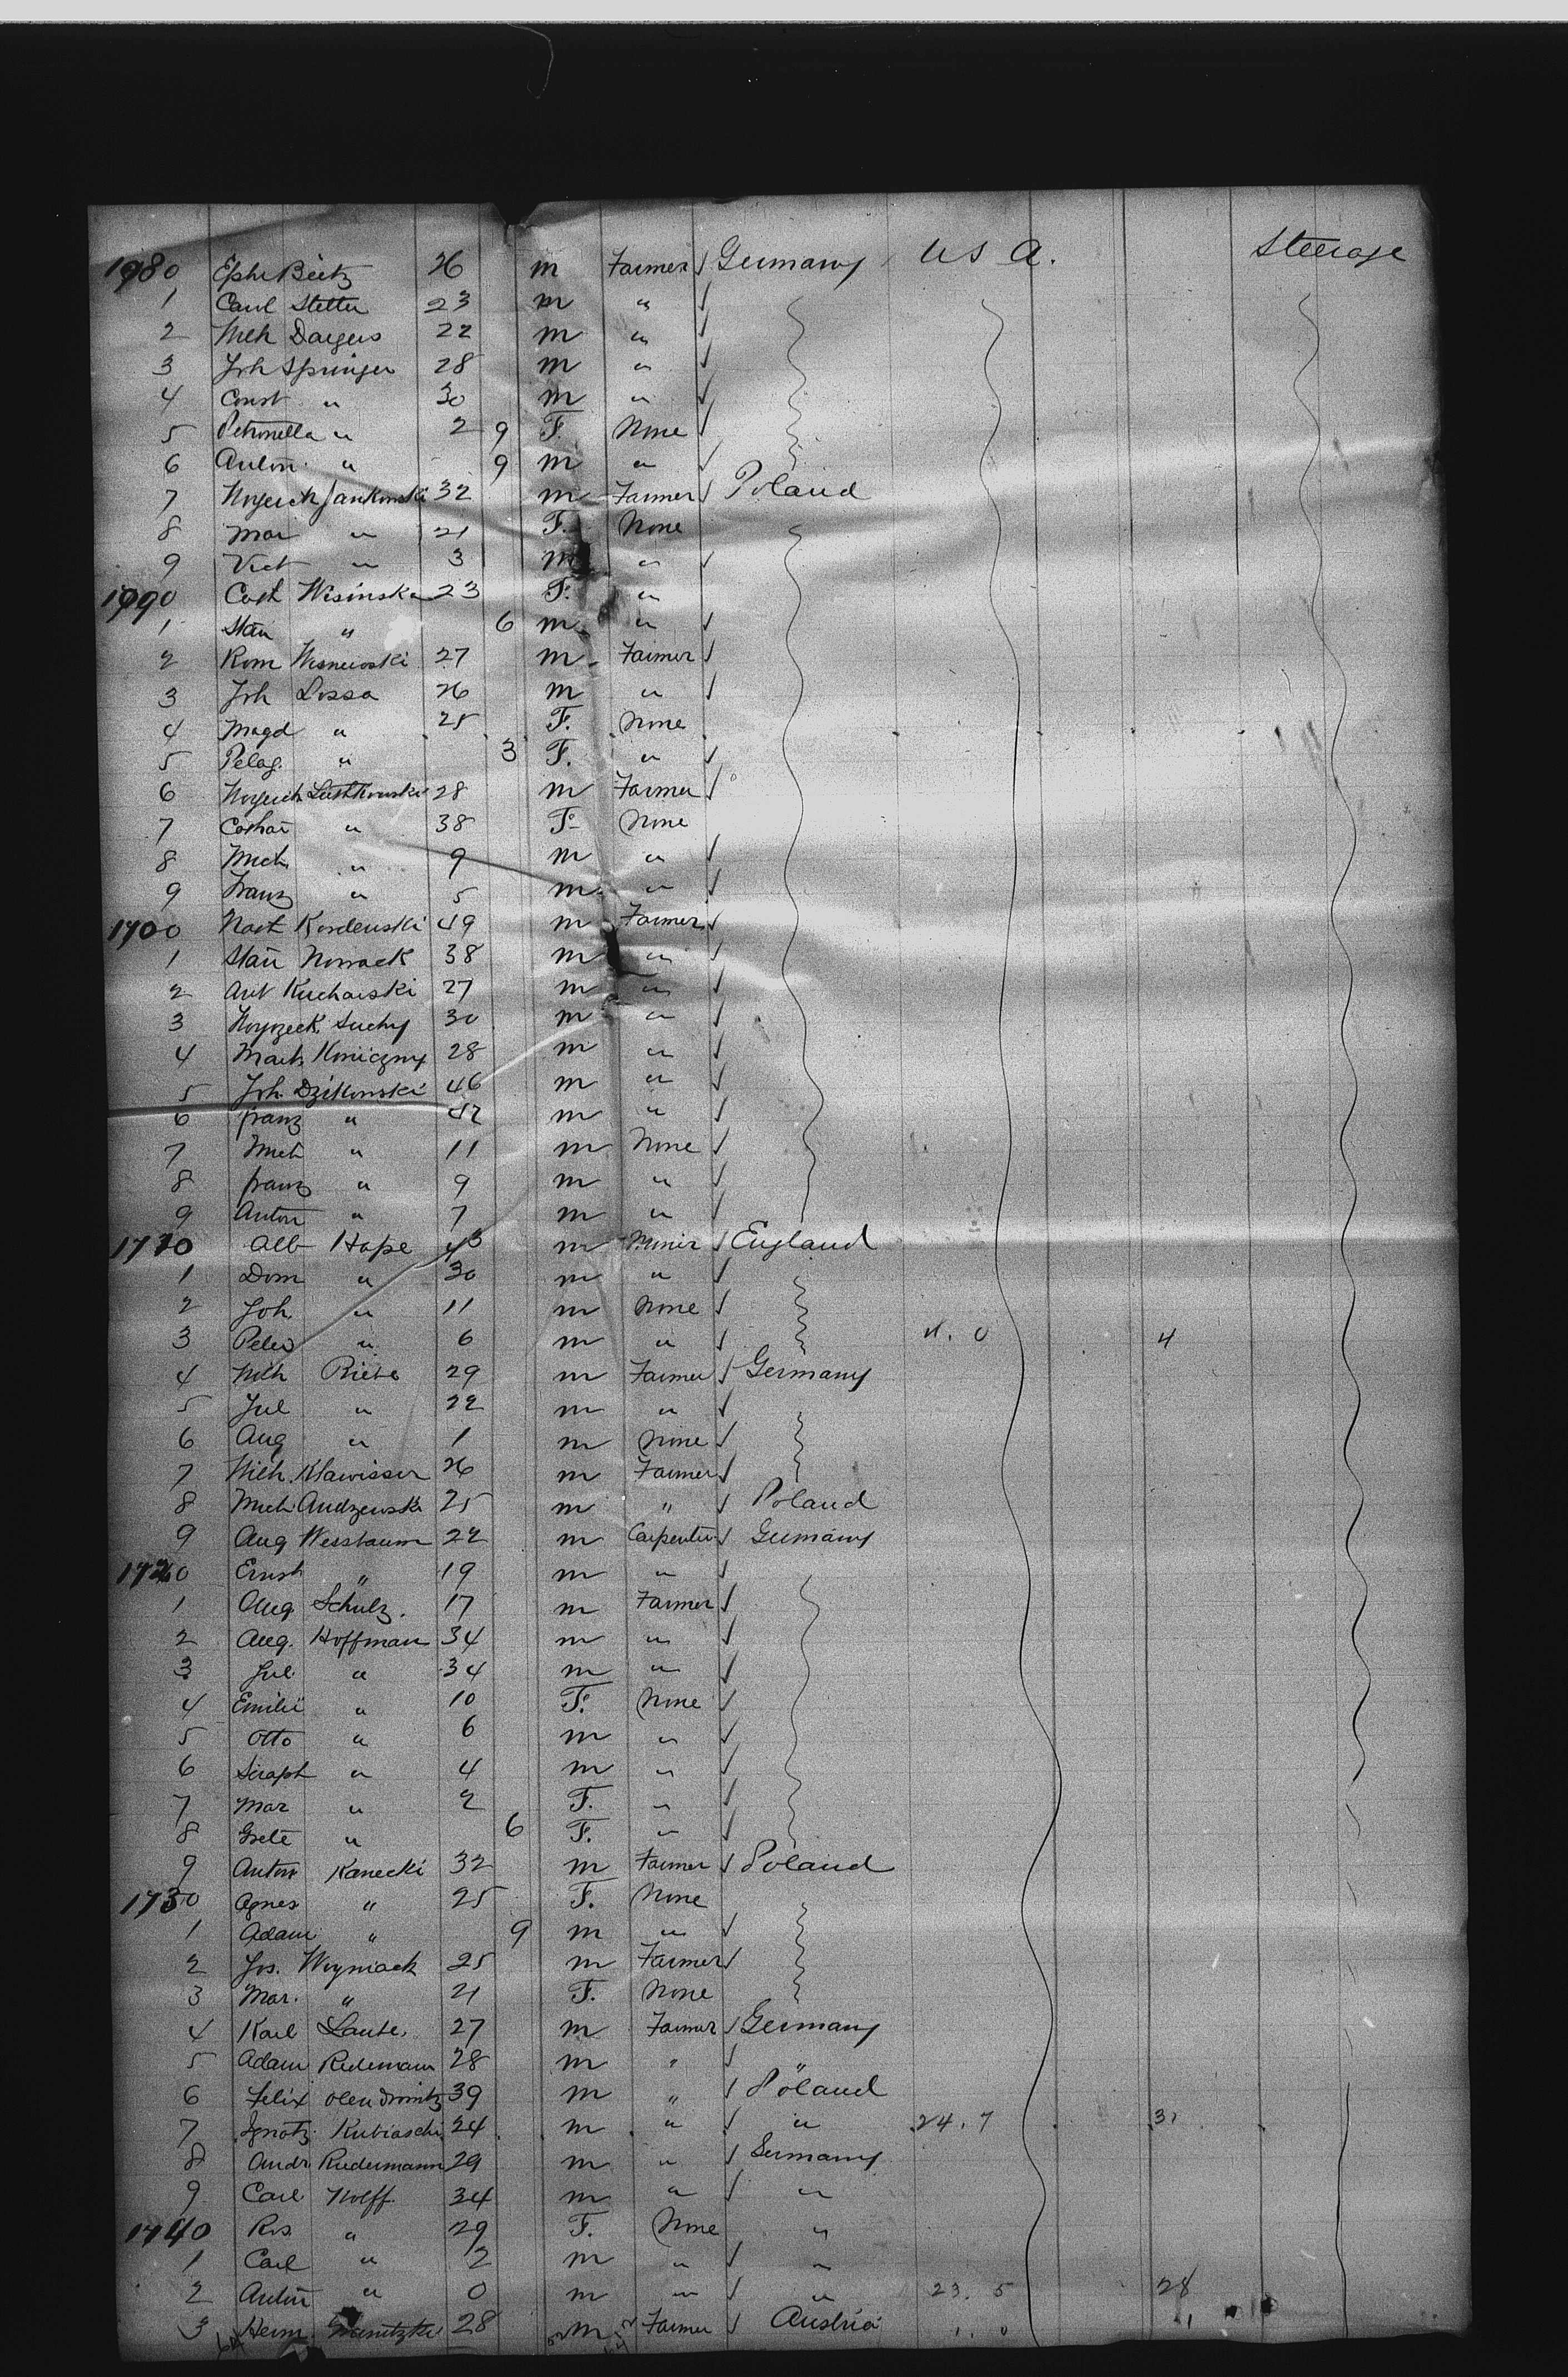 1980 Ephr Beitz 26 m Farmer √ Germany U S A. Steerage
1 Carl Stetter 23 m " √
2 Wilh Daegers 22 m " √
3 Joh Springer 28 m " √
4 Const " 30 m " √
5 Petronella " 2 9 F. None √
6 Anton " 9 m " √
7 Woyciech Jankowski 32 m Farmer √ Poland
8 Mar " 21 F. None
9 Vict " 3 m " √
1990 Cath Wisinska 23 F. "
1 Stan " 6 m " √
2 Rom Wisnewski 27 m Farmer √
3 Joh Lossa 26 m " √
4 Magd " 25 F. None
5 Pelag. " 3 F. " √
6 Woyciech 28 m Farmer √
7 Cathar " 38 F. None
8 Mich " 9 m " √
9 Franz " 5 m " √
1700 49 m Farmer √
1 Stan Nowack 38 m " √
2 Ant Kucharski 27 m " √
3 Woyzeck Suchy 30 m " √
4 Mart. Koniczny 28 m " √
5 Joh. Dzikonski 46 m " √
6 Franz " 42 m " √
7 Mich " 11 m None √
8 Franz " 9 m " √
9 Anton " 7 m " √
1710 Alb Hope 43 m Miner √ England
1 Dom " 30 m " √
2 Joh " 11 m None √
3 Peter " 6 m " √ 4. 0 4
4 Wilh Riebe 29 m Farmer √ Germany
5 Jul " 22 m " √
6 Aug " 1 m None √
7 Wilh. Klawisser 26 m Farmer √
8 Mich Andzewski 25 m " √ Poland
9 Aug Wessbaum 22 m Carpenter √ Germany
1720 Ernst " 19 m " √
1 Aug. Schulz. 17 m Farmer √
2 Aug. Hoffman 34 m " √
3 Jul " 34 m " √
4 Emilie " 10 F. None √
5 Otto " 6 m " √
6 Seraph " 4 m " √
7 Mar " 2 F. " √
8 Grete " 6 F. " √
9 Anton Kanecki 32 m Farmer √ Poland
1730 Agnes " 25 F. None
1 Adam " 9 m " √
2 Jos. Woyniack 25 m Farmer √
3 Mar. " 21 F. None
4 Karl Laube. 27 m Farmer √ Germany
5 Adam Rudemann 28 m " √ "
6 Felix 39 m " √ Poland
7 Ignatz Kubiaschi 24 m " √ " 24. 7 31
8 Andr Rudermann 29 m " √ Germany
9 Carl Wolff 34 m " √ "
1740 Ros " 29 F. None "
1 Carl " 2 m " √ "
2 Anton " 0 m " √ " 23. 5 28
3 Herm. 28 m Farmer √ Austria 1. 0 1